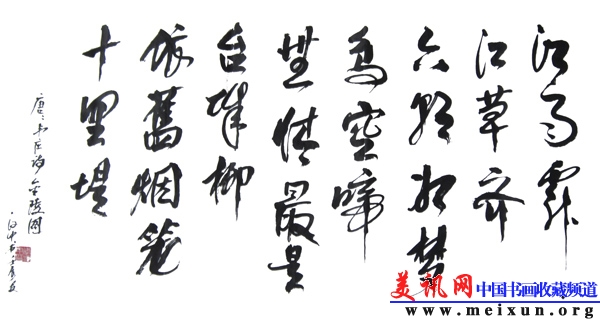 江雨霏
江草齐
六朝如梦
鸟空啼
無情最是
台城柳
依舊烟笼
十里堤
唐韦庄诗金陵图
美讯网中国书画收藏频道
www.meixun.org